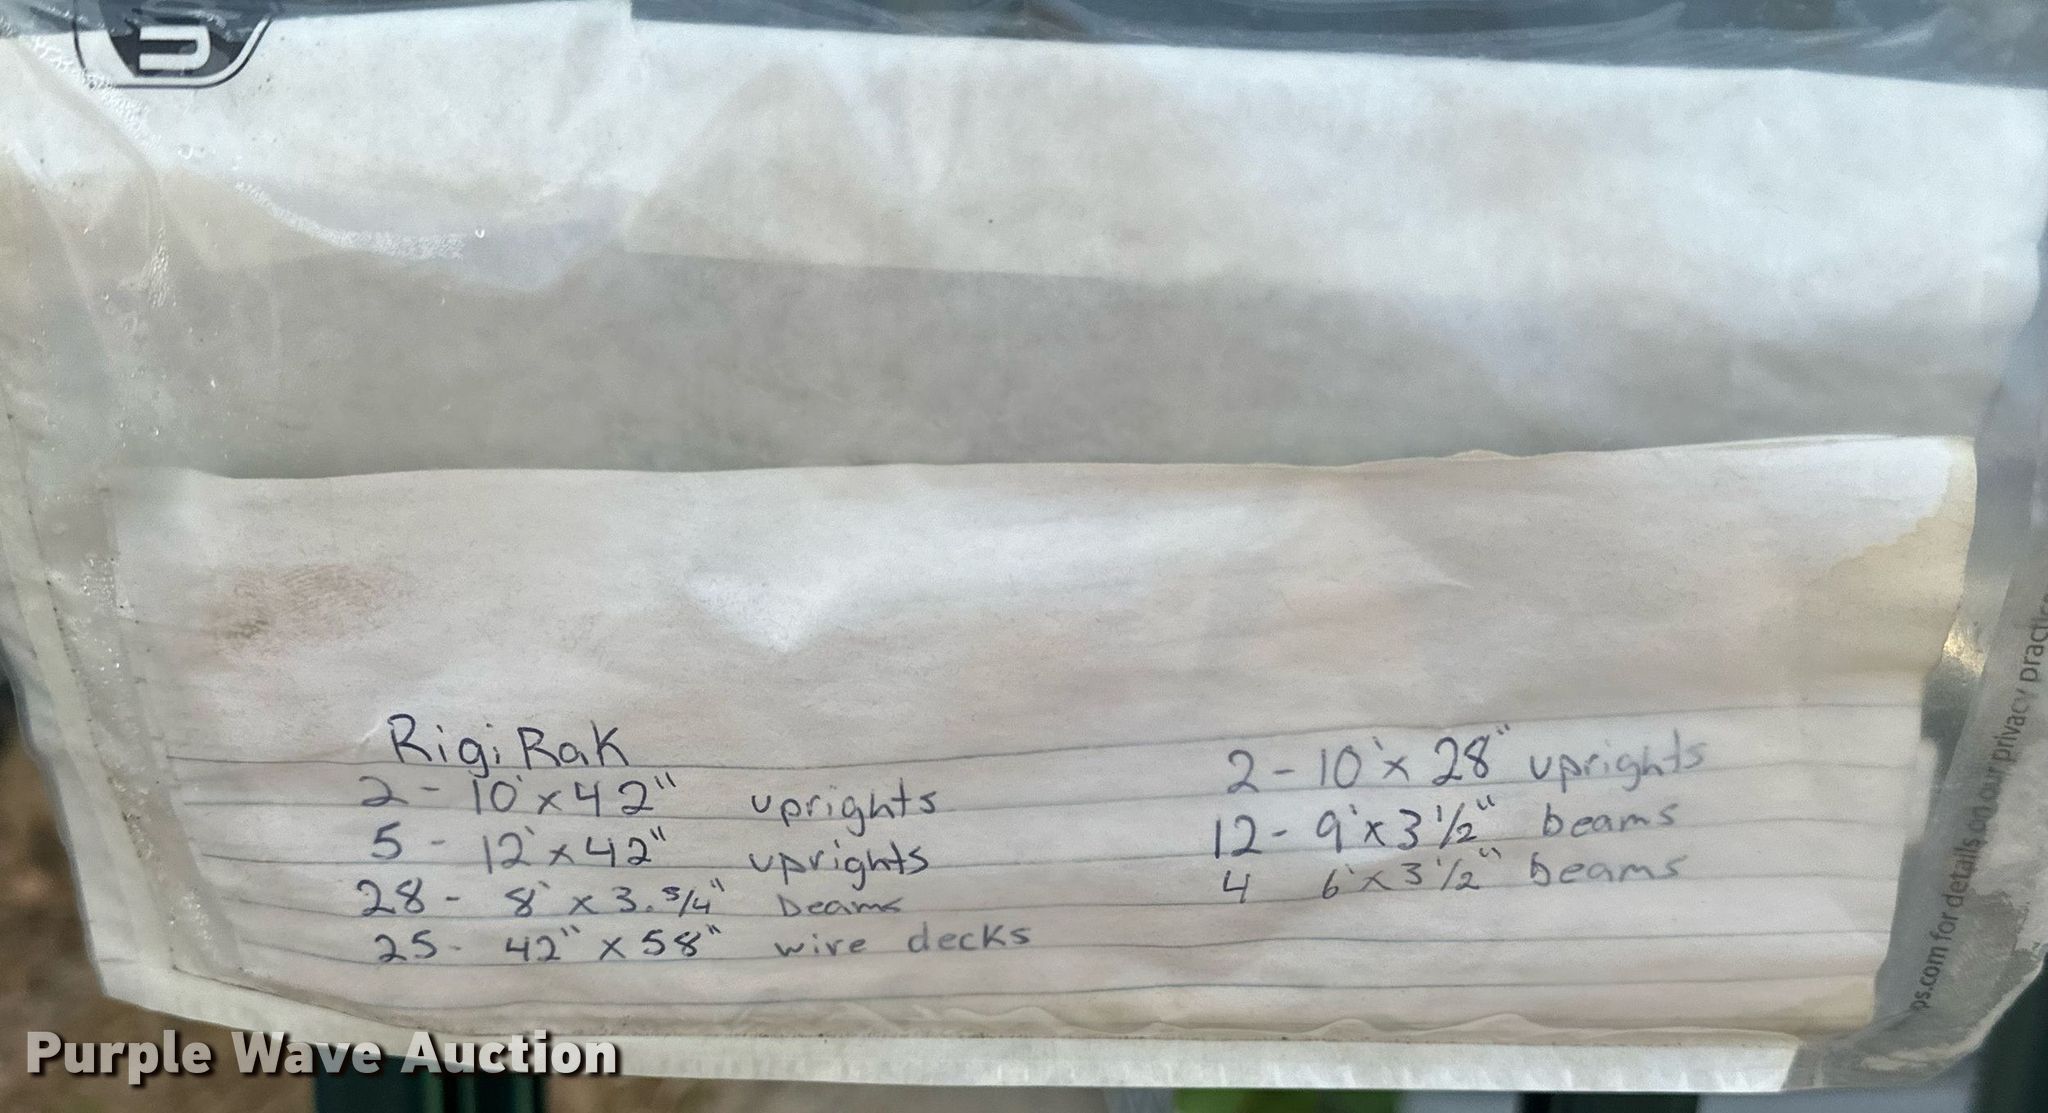 RigiRak
2 - 10' x 42" uprights
5 - 12' x 42" uprights
28 - 8' x 3.3/4" beams
25 - 42" x 58" wire decks
2 - 10' x 28" uprights
12 - 9' x 3 1/2" beams
4 6' x 3 1/2" beams
ps.com for details on our privacy practice
Purple Wave Auction